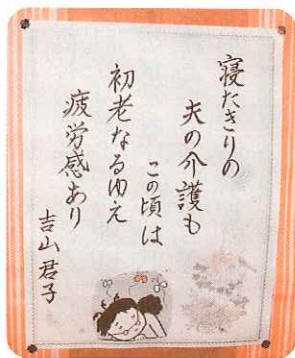 寝たきりの
夫の介護も
この頃は
初老なるゆえ
疲労感あり
吉山君子